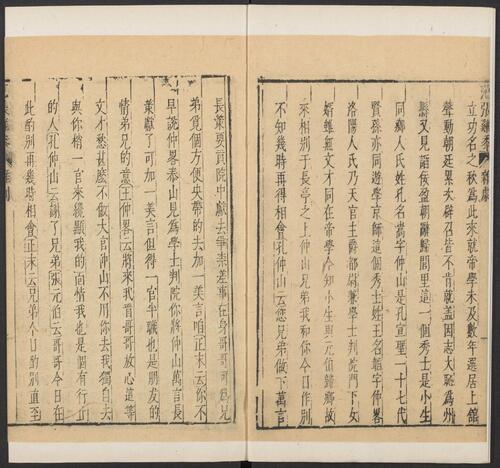 范張雞黍 雜劇
立功名之秋爲此來就帝學未及數年選居上舘
聲動朝廷累次辟召皆不肯就蓋因志大恥爲州
縣又見諂佞盈朝辭歸閭里這一個秀士是小生
同鄉人氏姓孔名嵩字仲山是孔宣聖一十七代
賢孫亦同遊學京師這個秀士姓王名韜字仲畧
洛陽人氏乃天官主爵都尉兼學士判院門下女
婿雖無文才同在帝學今知小生與元伯歸鄉故
來相別于長亭之上仲山兄弟我和你今日作別
不知幾時再得相會孔仲山云您兄弟做下萬言
長策要貢院中獻去爭柰差事在身哥哥可爲兄
弟覓個方便央帶的去加一美言咱正末云你不
早說仲畧泰山見爲學士判院你將仲山萬言長
策獻了可加一美言但得一官半職也是朋友的
情弟兄的意王仲畧云將來我會哥哥放心這等
文才愁甚麽不做大官仲山不用你去我獨自去
與你梢一官來纔顯我的面情我也是個有行止
的人孔仲山云謝了兄弟張元伯云哥哥今日在
此酌別再幾時相會正末云兄弟今日酌別直至